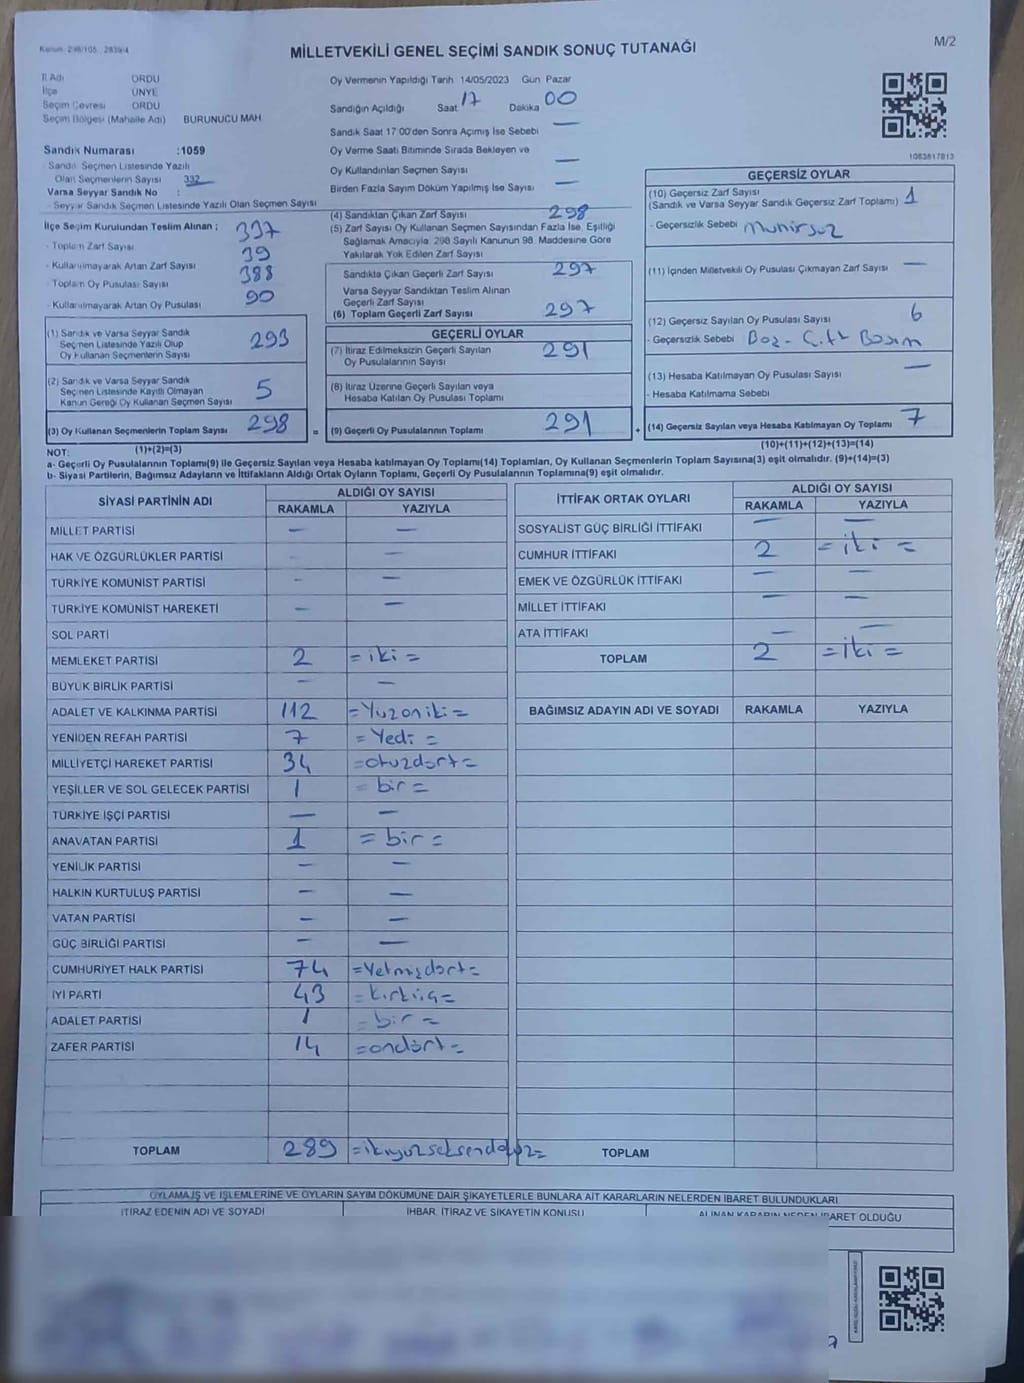 Kanun: 298/105, 2839/4
MİLLETVEKİLİ GENEL SEÇİMİ SANDIK SONUÇ TUTANAĞI
M/2
İl Adı ORDU
İlçe ÜNYE
Seçim Çevresi ORDU
Seçim Bölgesi (Mahalle Adı) BURUNUCU MAH.
Sandık Numarası :1059
- Sandık Seçmen Listesinde Yazılı
Olan Seçmenlerin Sayısı 332
Varsa Seyyar Sandık No :
- Seyyar Sandık Seçmen Listesinde Yazılı Olan Seçmen Sayısı
Oy Vermenin Yapıldığı Tarih 14/05/2023 Gün Pazar
Sandığın Açıldığı Saat 17 Dakika 00
Sandık Saat 17:00'den Sonra Açılmış İse Sebebi —
Oy Verme Saati Bitiminde Sırada Bekleyen ve
Oy Kullandırılan Seçmen Sayısı —
Birden Fazla Sayım Döküm Yapılmış İse Sayısı —
1083817813
İlçe Seçim Kurulundan Teslim Alınan ; 337
- Toplam Zarf Sayısı
- Kullanılmayarak Artan Zarf Sayısı 39
- Toplam Oy Pusulası Sayısı 388
- Kullanılmayarak Artan Oy Pusulası 90
(1) Sandık ve Varsa Seyyar Sandık
Seçmen Listesinde Yazılı Olup
Oy Kullanan Seçmenlerin Sayısı 293
(2) Sandık ve Varsa Seyyar Sandık
Seçmen Listesinde Kayıtlı Olmayan
Kanun Gereği Oy Kullanan Seçmen Sayısı 5
(3) Oy Kullanan Seçmenlerin Toplam Sayısı 298 =
(1)+(2)=(3)
(4) Sandıktan Çıkan Zarf Sayısı 298
(5) Zarf Sayısı Oy Kullanan Seçmen Sayısından Fazla İse, Eşitliği
Sağlamak Amacıyla; 298 Sayılı Kanunun 98. Maddesine Göre
Yakılarak Yok Edilen Zarf Sayısı
Sandıkta Çıkan Geçerli Zarf Sayısı 297
Varsa Seyyar Sandıktan Teslim Alınan
Geçerli Zarf Sayısı
(6) Toplam Geçerli Zarf Sayısı 297
GEÇERLİ OYLAR
(7) İtiraz Edilmeksizin Geçerli Sayılan
Oy Pusulalarının Sayısı 291
(8) İtiraz Üzerine Geçerli Sayılan veya
Hesaba Katılan Oy Pusulası Toplamı
(9) Geçerli Oy Pusulalarının Toplamı 291 +
GEÇERSİZ OYLAR
(10) Geçersiz Zarf Sayısı 1
(Sandık ve Varsa Seyyar Sandık Geçersiz Zarf Toplamı)
- Geçersizlik Sebebi Muhürsüz
(11) İçinden Milletvekili Oy Pusulası Çıkmayan Zarf Sayısı —
(12) Geçersiz Sayılan Oy Pusulası Sayısı 6
- Geçersizlik Sebebi Boş - Çift Basım
(13) Hesaba Katılmayan Oy Pusulası Sayısı —
- Hesaba Katılmama Sebebi
(14) Geçersiz Sayılan veya Hesaba Katılmayan Oy Toplamı 7
(10)+(11)+(12)+(13)=(14)
NOT:
a- Geçerli Oy Pusulalarının Toplamı(9) ile Geçersiz Sayılan veya Hesaba katılmayan Oy Toplamı(14) Toplamları, Oy Kullanan Seçmenlerin Toplam Sayısına(3) eşit olmalıdır. (9)+(14)=(3)
b- Siyasi Partilerin, Bağımsız Adayların ve İttifakların Aldığı Ortak Oyların Toplamı, Geçerli Oy Pusulalarının Toplamına(9) eşit olmalıdır.
SİYASİ PARTİNİN ADI ALDIĞI OY SAYISI
RAKAMLA YAZIYLA
MİLLET PARTİSİ — —
HAK VE ÖZGÜRLÜKLER PARTİSİ - —
TÜRKİYE KOMÜNİST PARTİSİ - —
TÜRKİYE KOMÜNİST HAREKETİ - —
SOL PARTİ
MEMLEKET PARTİSİ 2 = iki =
BÜYÜK BİRLİK PARTİSİ — —
ADALET VE KALKINMA PARTİSİ 112 = Yüzoniki =
YENİDEN REFAH PARTİSİ 7 = Yedi =
MİLLİYETÇİ HAREKET PARTİSİ 34 = otuzdört =
YEŞİLLER VE SOL GELECEK PARTİSİ 1 = bir =
TÜRKİYE İŞÇİ PARTİSİ — —
ANAVATAN PARTİSİ 1 = bir =
YENİLİK PARTİSİ — —
HALKIN KURTULUŞ PARTİSİ — —
VATAN PARTİSİ — —
GÜÇ BİRLİĞİ PARTİSİ — —
CUMHURİYET HALK PARTİSİ 74 = Yetmişdört =
İYİ PARTİ 43 = kırküç =
ADALET PARTİSİ 1 = bir =
ZAFER PARTİSİ 14 = ondört =
TOPLAM 289 = ikiyüzseksendokuz =
İTTİFAK ORTAK OYLARI ALDIĞI OY SAYISI
RAKAMLA YAZIYLA
SOSYALİST GÜÇ BİRLİĞİ İTTİFAKI — —
CUMHUR İTTİFAKI 2 = iki =
EMEK VE ÖZGÜRLÜK İTTİFAKI — —
MİLLET İTTİFAKI — —
ATA İTTİFAKI — —
TOPLAM 2 = iki =
BAĞIMSIZ ADAYIN ADI VE SOYADI RAKAMLA YAZIYLA
TOPLAM
OYLAMA İŞ VE İŞLEMLERİNE VE OYLARIN SAYIM DÖKÜMÜNE DAİR ŞİKAYETLERLE BUNLARA AİT KARARLARIN NELERDEN İBARET BULUNDUKLARI
İTİRAZ EDENİN ADI VE SOYADI İHBAR, İTİRAZ VE ŞİKAYETİN KONUSU ALINAN KARARIN NEDEN İBARET OLDUĞU